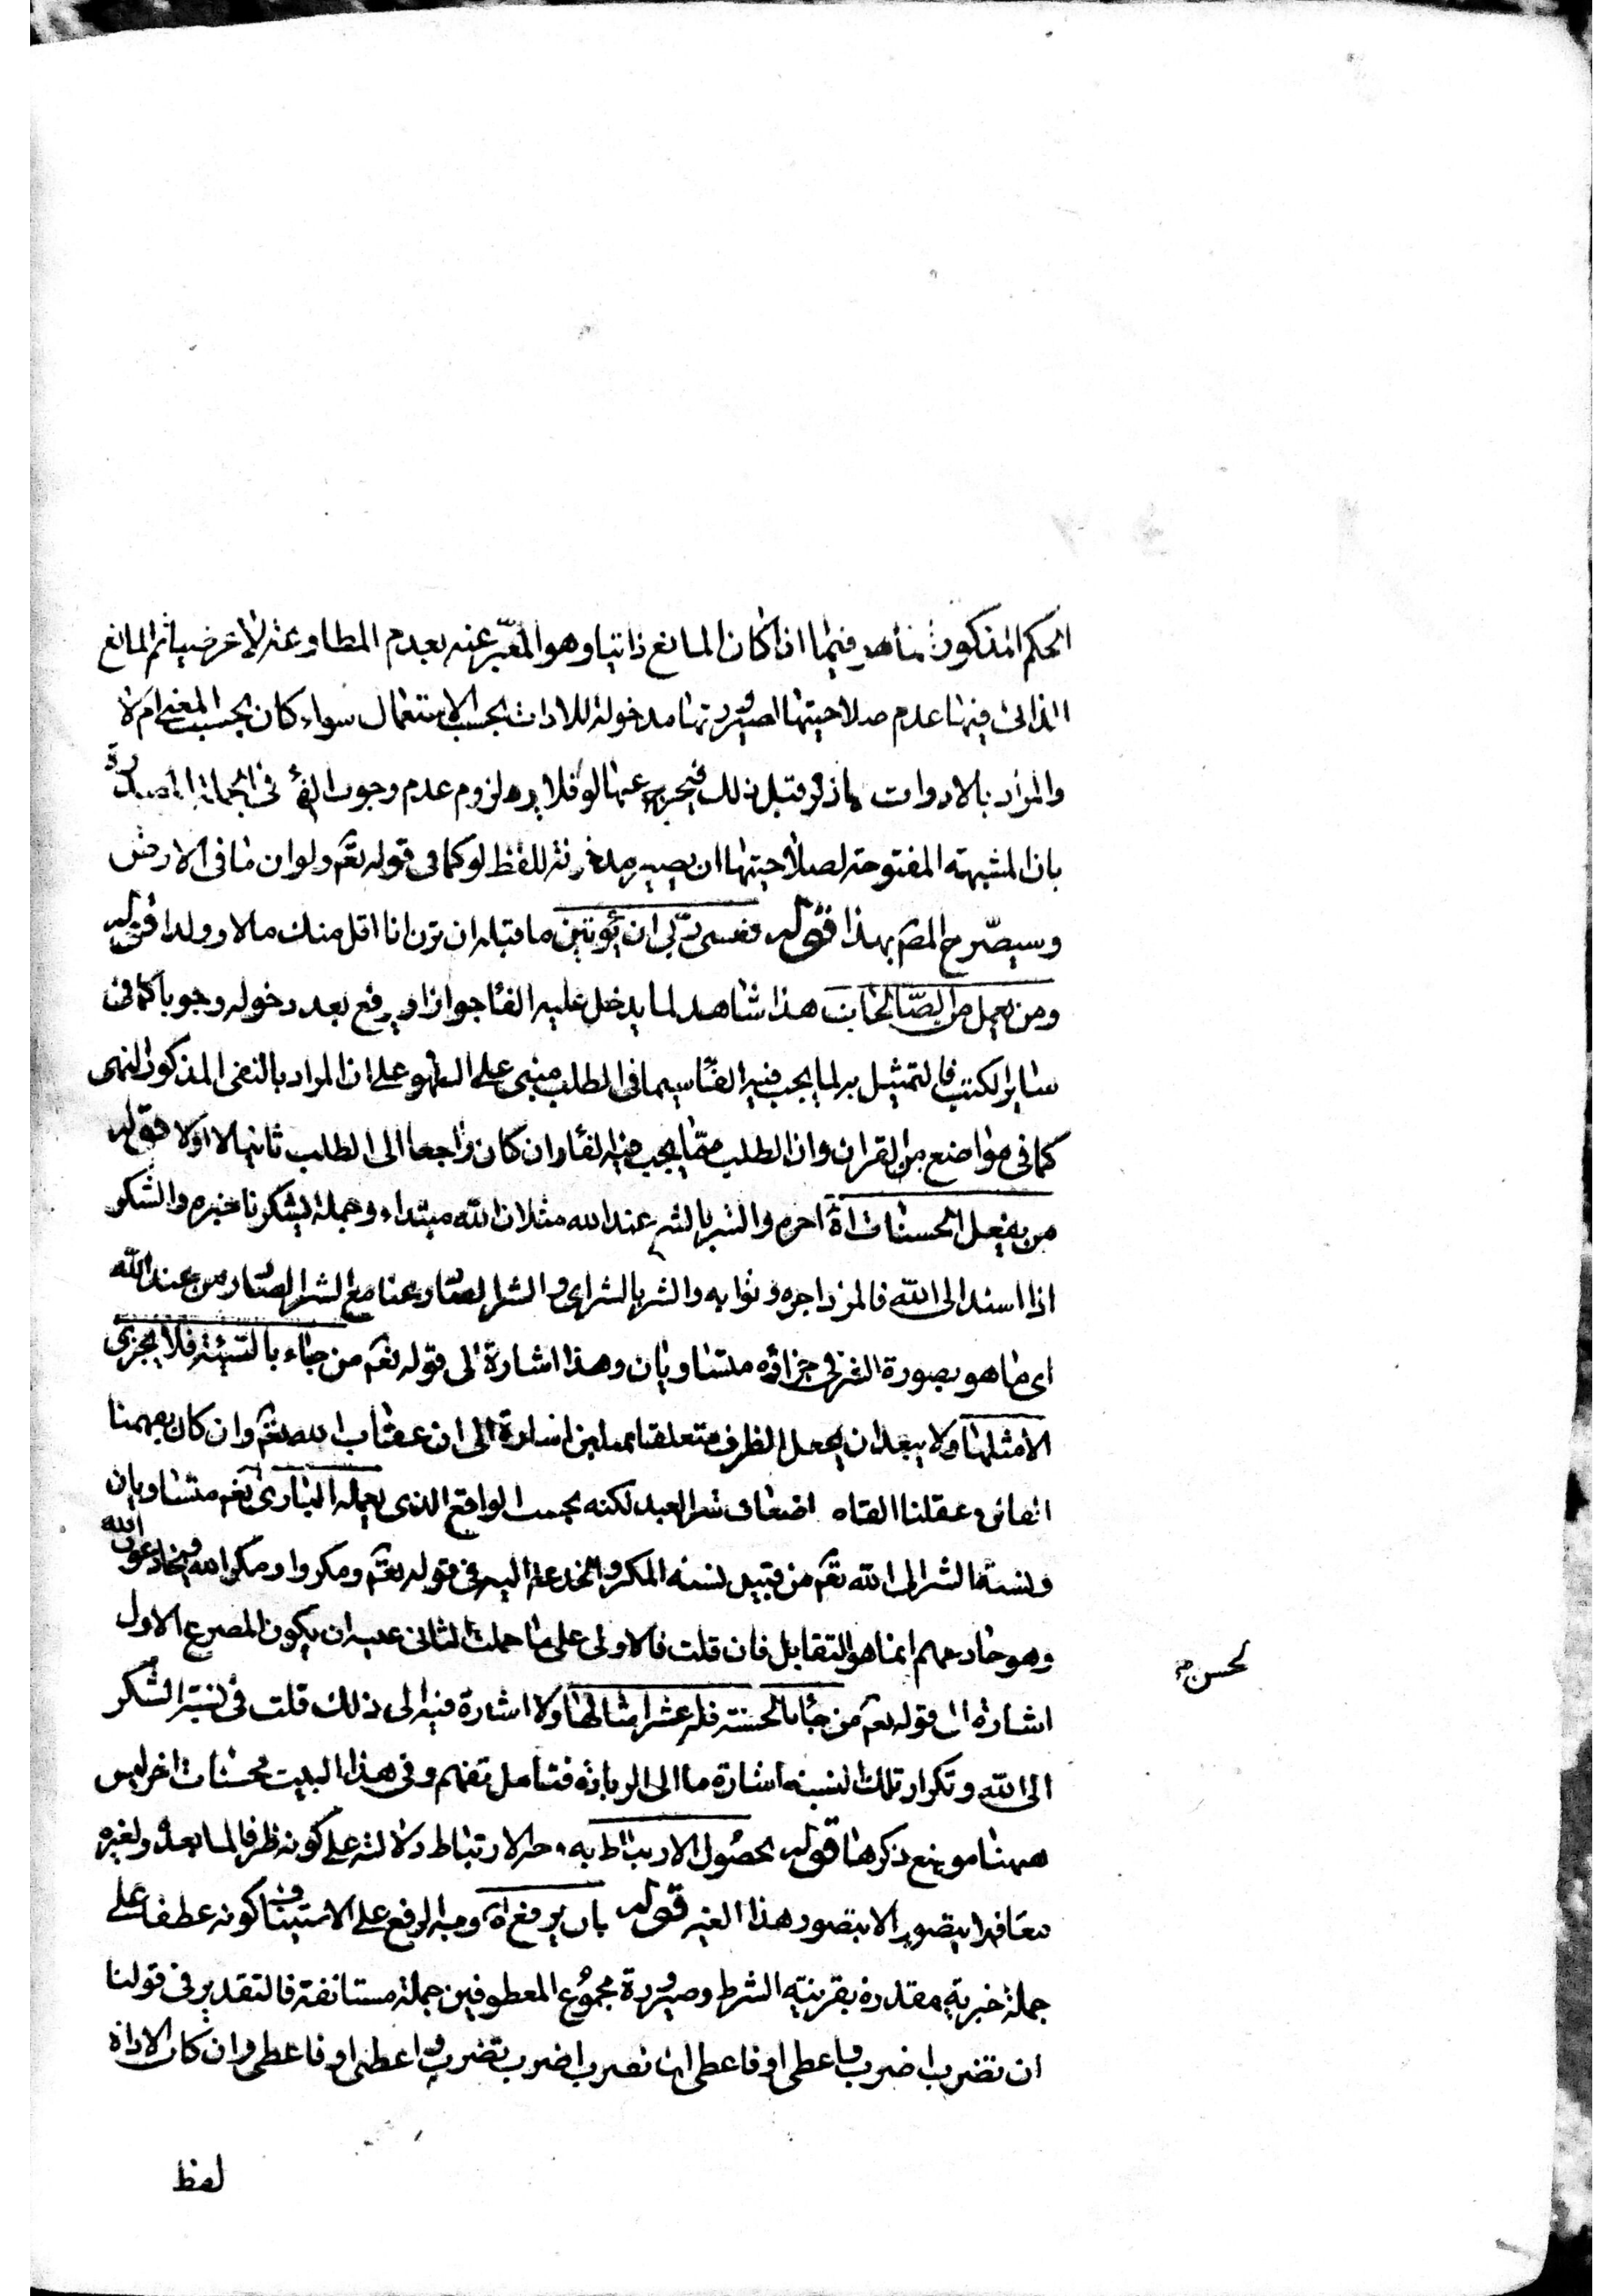 الحكم المذكور فيما اذا كان المانع ذاتيا وهو المعبّر عنه بعدم المطاوعة لا عرضيا ثم المانع
الذاتى فيها عدم صلاحيتها لصيرورتها مدخولة للادات بحسب الاستعمال سواء كان بحسب المعنى ام لا
والمراد بالادوات ما ذكر قبل ذلك فيخرج عنها لو فلا يرد لزوم عدم وجوب الفاء فى الجملة المصدرة
بان المشبهة المفتوحة لصلاحيتها ان يصير مدخولة للفظ لو كما فى قوله تعم ولو ان ما فى الارض
وسيصرّح المصـ بهذا قوله فعسى ربّى ان يؤتين ما قبله ان ترن انا اقل منك مالا وولدا قوله
ومن يعمل من الصّالحات هذا شاهد لما يدخل عليه الفاء جوازا ويرفع بعد دخوله وجوبا كما فى
ساير الكتب فالتمثيل به لما يجب فيه الفاء سيما فى الطلب مبنى على السهو على ان المراد بالنفى المذكور النهى
كما فى مواضع من القران وان الطلب ممّا يجب فيه الفاء وان كان راجعا الى الطلب ثانيا لا اولا قوله
من يفعل الحسنات اه اخره والشر بالشر عند الله مثلان الله مبتداء وجملة يشكرنا خبره والشكر
اذا اسند الى الله فالمراد اجره وثوابه والشر بالشر اى والشر الصادر عنا مع الشر الصادر من عند الله
اى ما هو بصورة الشر فى جزائه متساويان وهذا اشارة الى قوله تعم من جاء بالسّيئة فلا يجزى
الا مثلها ولا يبعد ان يجعل الظرف متعلقا بمثلين اشارة الى ان عقاب الله تعم وان كان بفهمنا
وعقلنا اضعاف شر العبد لكنه بحسب الواقع الذى يعمله البارى تعم متساويان
ونسبة الشر الى الله تعم من قبيل نسبة المكر والخدعة اليه فى قوله تعم ومكروا ومكر الله ويخادعون الله
وهو خادعهم انما هو التقابل فان قلت فالاولى على ما حملت الثانى عليه ان يكون المصرع الاول
اشارة الى قوله تعم من جاء بالحسنة فله عشر امثالها ولا اشارة فيه الى ذلك قلت فى نسبة الشكر
الى الله وتكرار تلك النسبة اشارة ما الى الزيادة فتامل تفهم وفى هذا البيت محسنات اخر ليس
ههنا موضع ذكرها قوله لحصول الارتباط به الارتباط دلالته على كونه ظرفا لما بعده ولغيره
يتصور الا بتصور هذا الغير قوله بان يرفع اه وجه الرفع على الاستيناف كونه عطفا على
جملة خبرية مقدرة بقرينية الشرط وصيرورة مجموع المعطوفين جملة مستانفة فالتقدير فى قولنا
ان تضرب اضرب واعطى او فاعطى ان تضرب اضرب تضرب واعطى او فاعطى وان كان الاداة
لحسن
لفظ